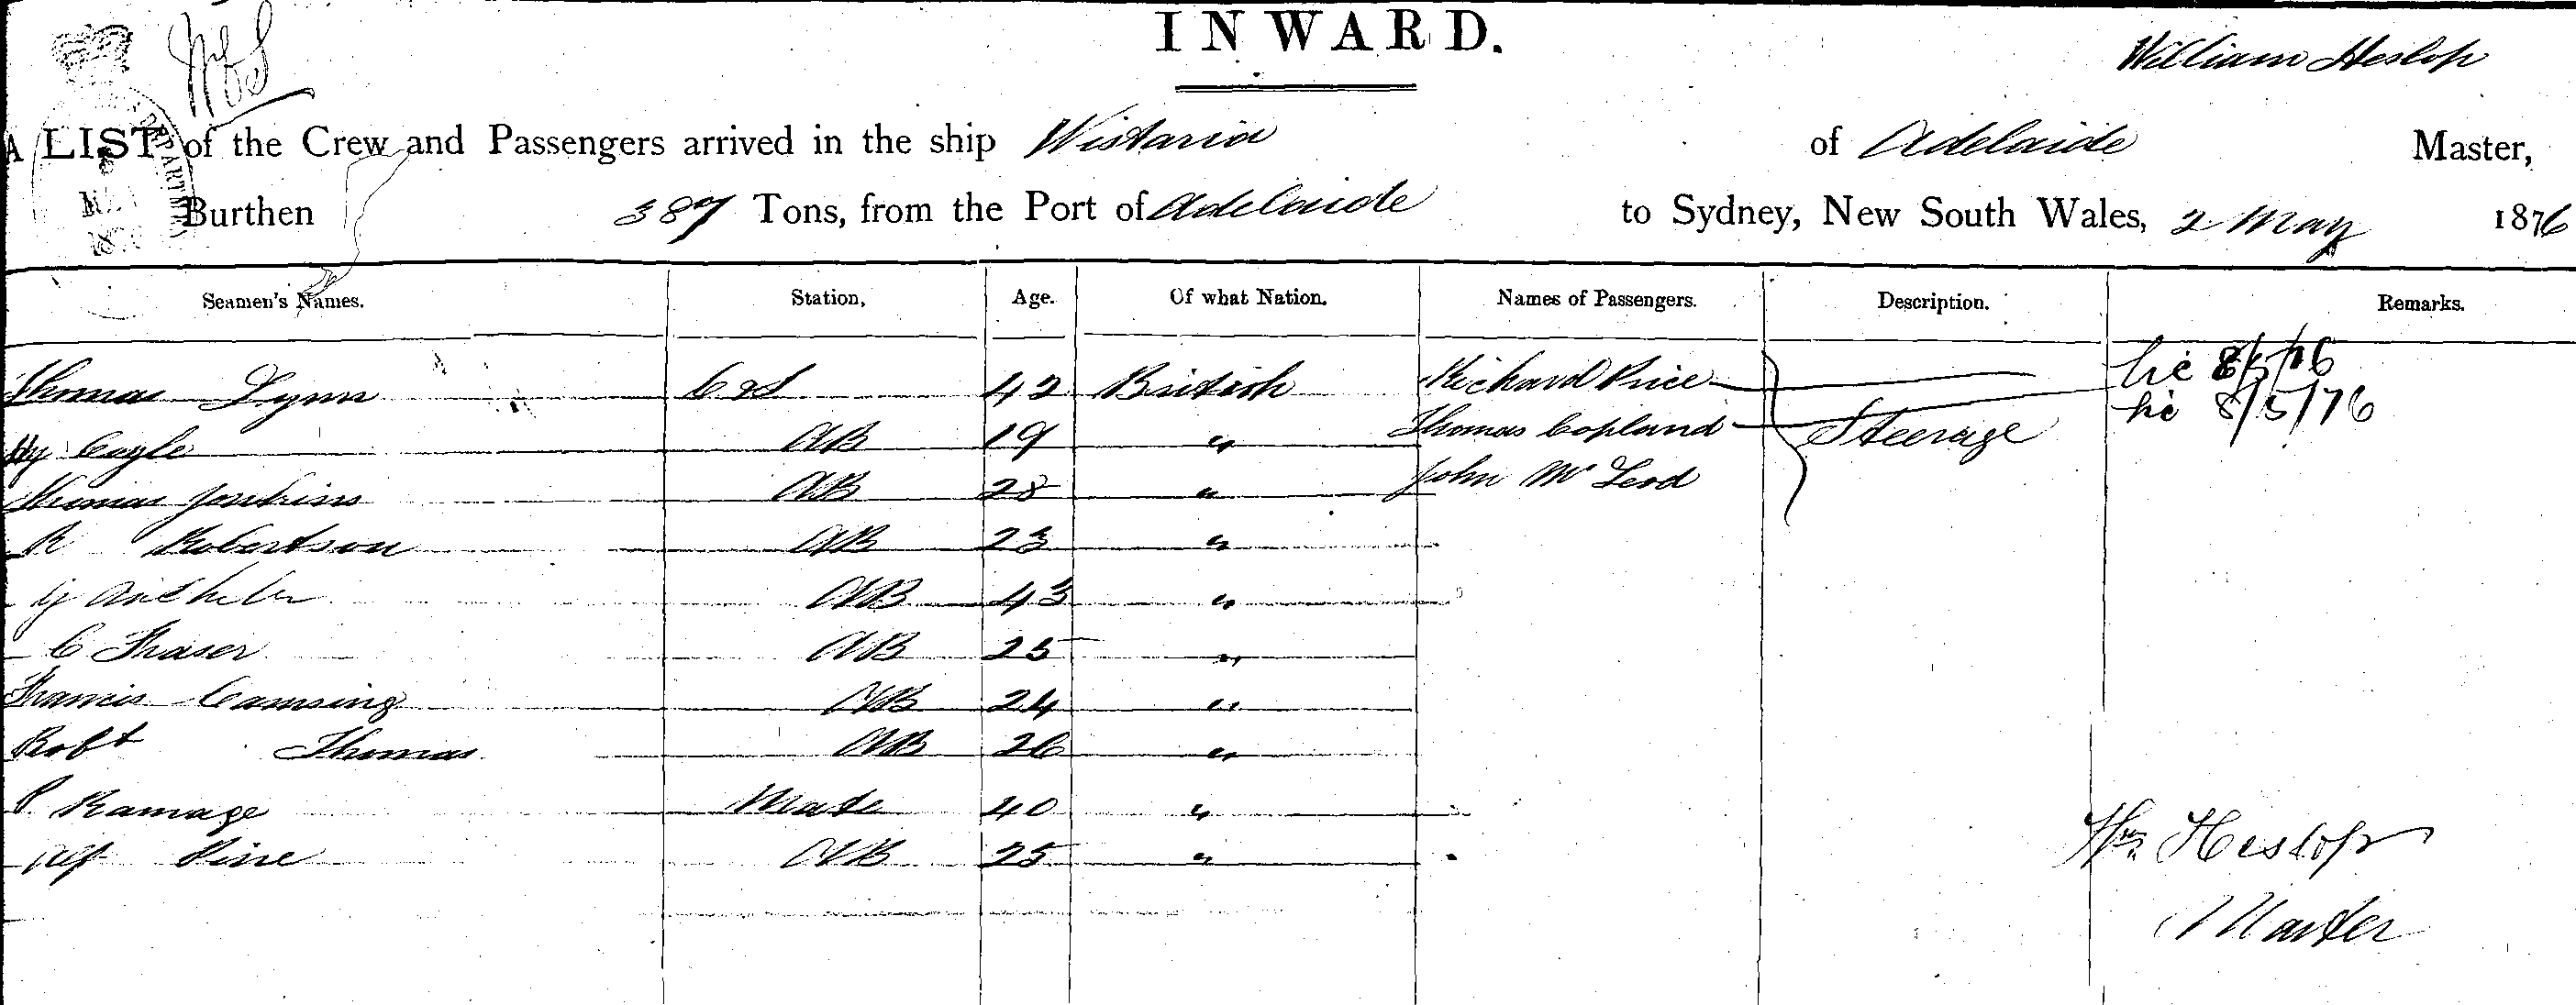 INWARD.
William Heslop
A LIST of the Crew and Passengers arrived in the ship Wistaria of Adelaide Master,
Burthen 387 Tons, from the Port of Adelaide to Sydney, New South Wales, 2 May 1876
Seamen's Names. Station, Age. Of what Nation. Names of Passengers. Description. Remarks.
Thomas Lynn 42 British Richard Price 8/5/76
Hy Cagle AB 19 " Thomas Copland Steerage 8/5/76
Thomas Jenkins AB 28 " John McLeod
R Robertson AB 23 "
AB 43 "
C Fraser AB 25 "
Francis Camsing AB 24 "
Robt Thomas AB 26 "
P Ramage Mate 40 "
Alf AB 25 "
Wm Heslop
Master